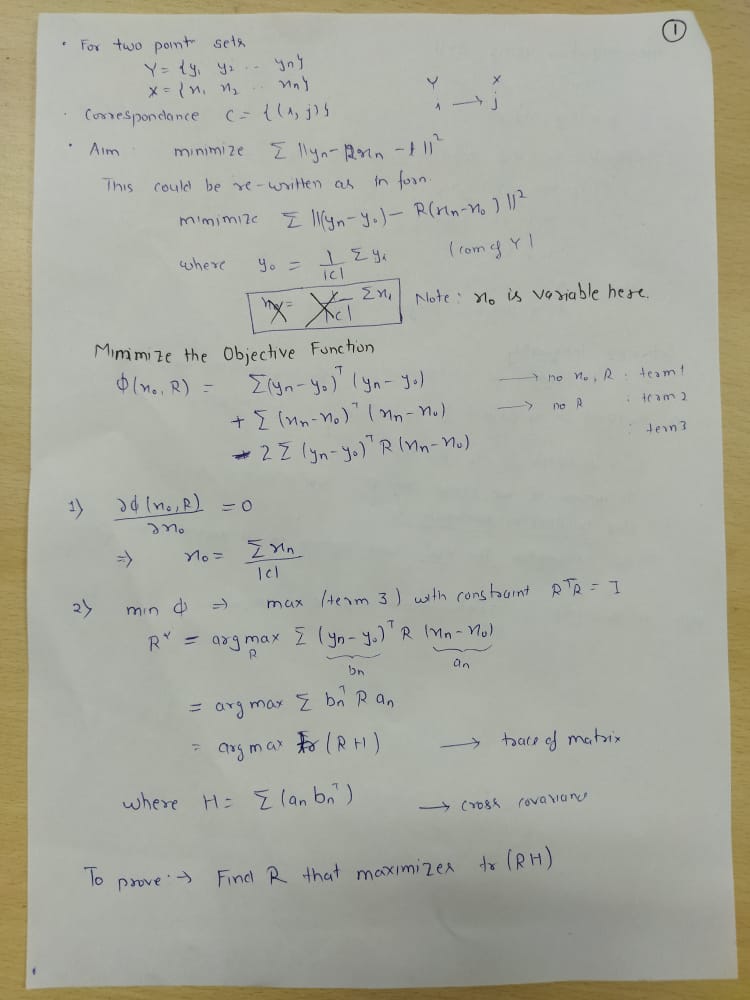 ①
• For two point sets
Y = {y₁ y₂ .. yn}
X = {x₁, x₂ .. xn}
Y X
· Correspondance C = {(i, j)} i → j
• Aim minimize Σ ||yn - Rxn - t||²
This could be re-written as in form.
minimize Σ ||(yn - y₀) - R(xn - x₀)||²
where y₀ = 1/|c| Σ yi (com of Y)
Σxi Note: x₀ is variable here.
Minimize the Objective Function
Φ(x₀, R) = Σ(yn - y₀)ᵀ (yn - y₀) → no x₀, R : term 1
+ Σ (xn - x₀)ᵀ (xn - x₀) → no R : term 2
- 2 Σ (yn - y₀)ᵀ R (xn - x₀) : term 3
1) ∂Φ(x₀, R) / ∂x₀ = 0
⇒ x₀ = Σ xn / |c|
2) min Φ ⇒ max (term 3) with constraint RᵀR = I
R* = arg max R Σ (yn - y₀)ᵀ R (xn - x₀)
bn an
= arg max Σ bnᵀ R an
= arg max tr (RH) → trace of matrix
where H = Σ (an bnᵀ) → cross covariance
To prove :→ Find R that maximizes tr (RH)